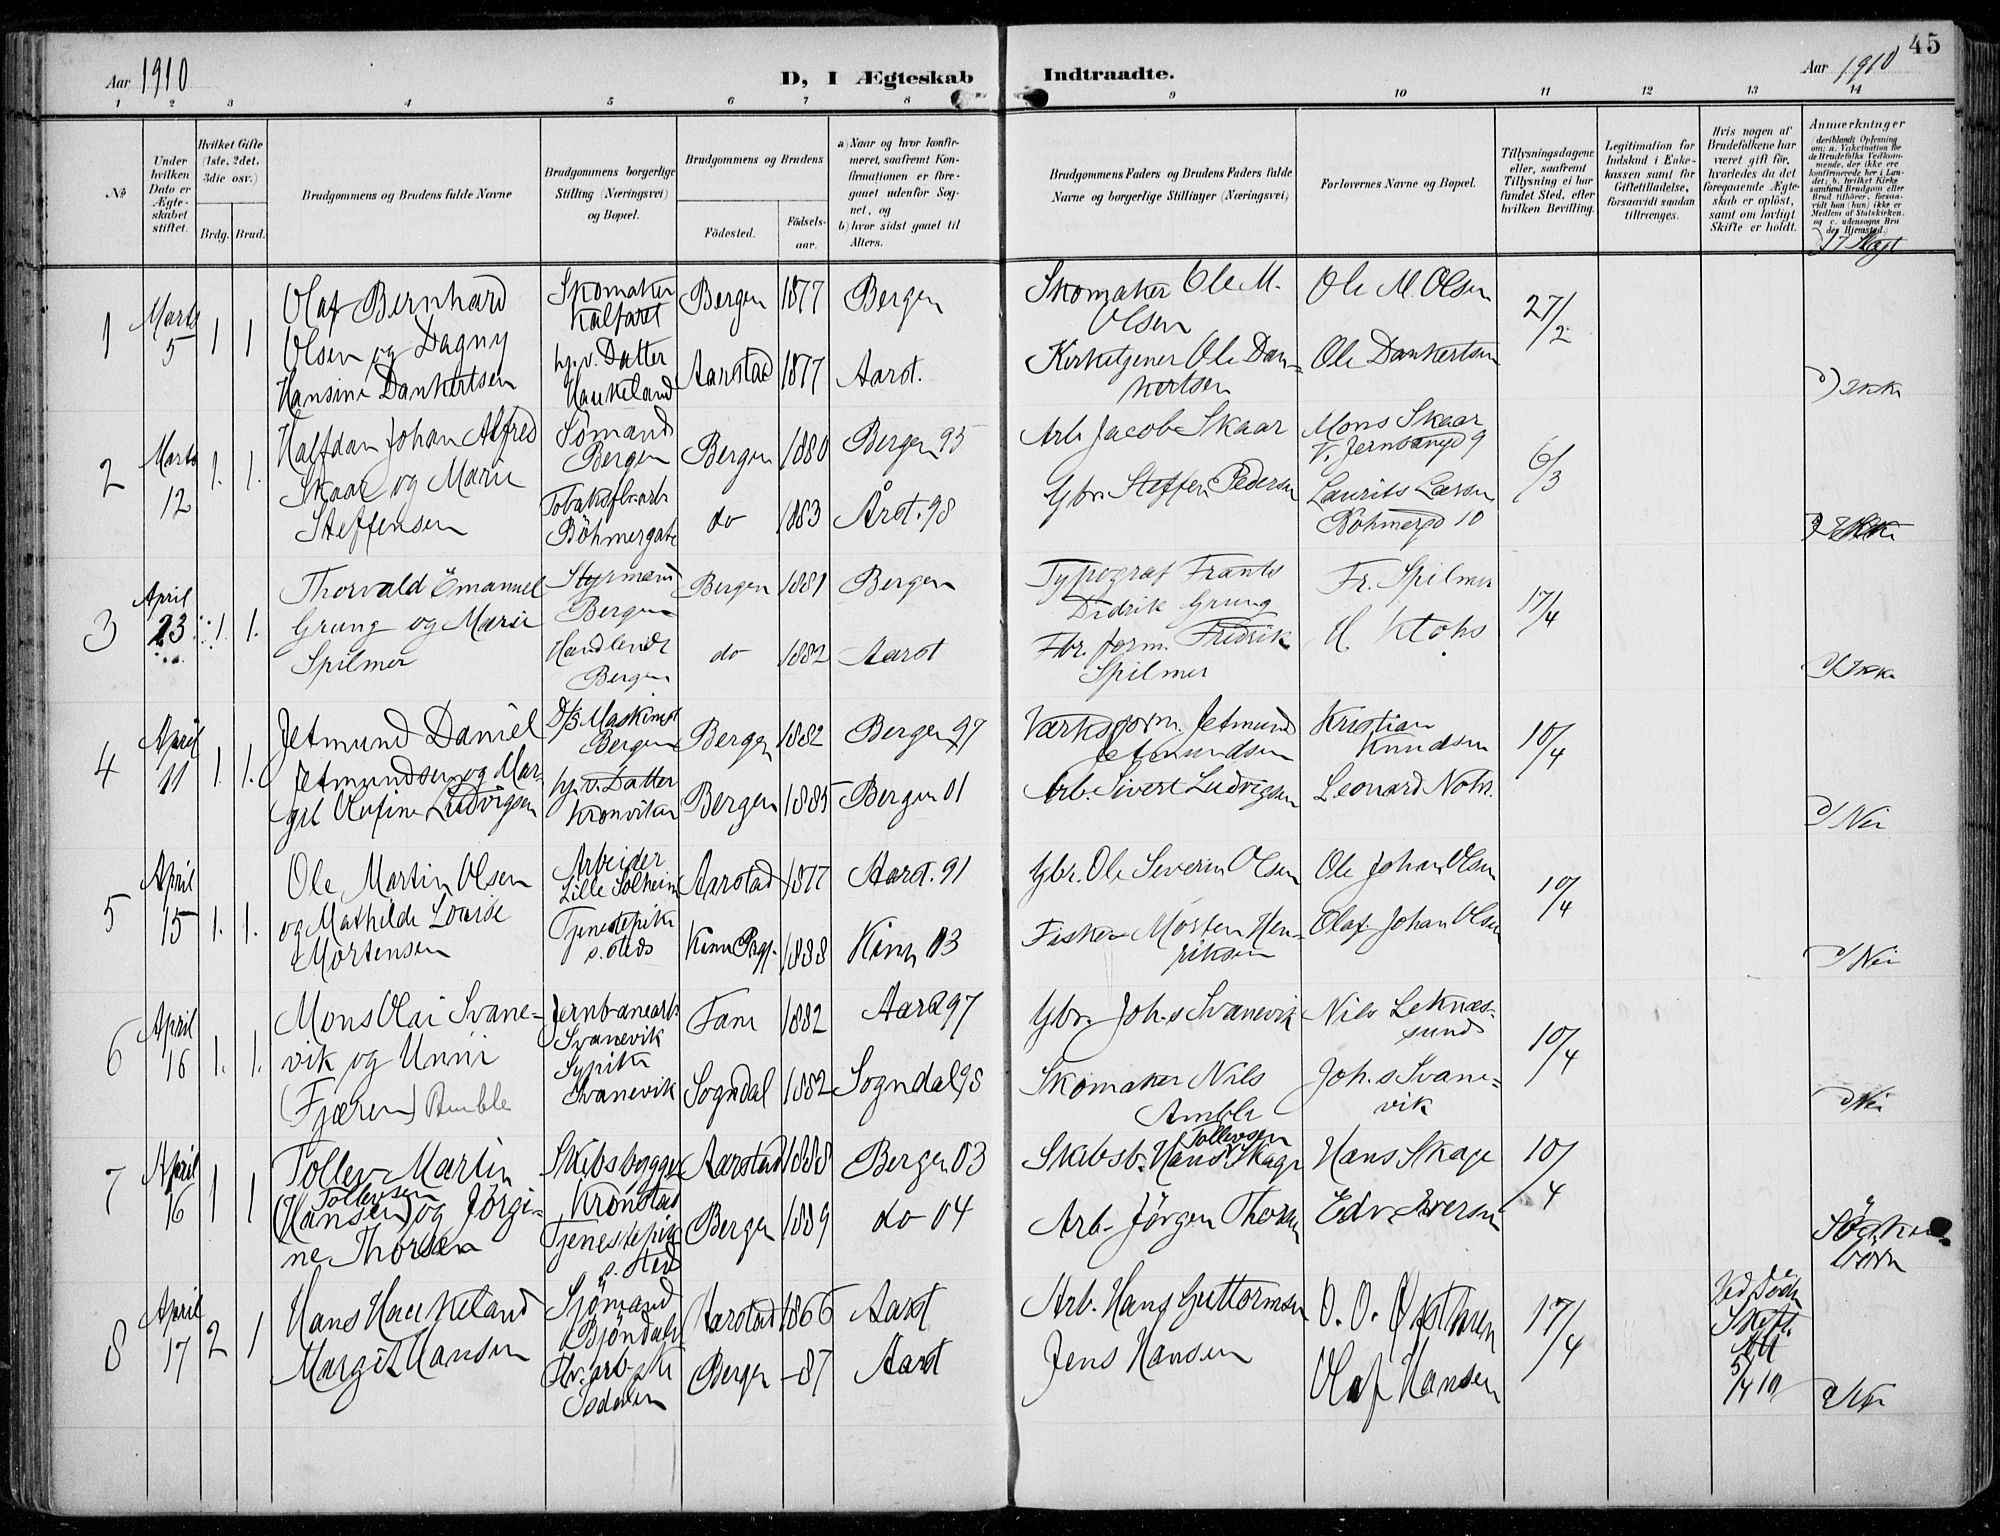 45
Aar 1910
D, I Ægteskab Indtraadte.
Aar 1910
1 2 3 4 5 6 7 8 9 10 11 12 13 14
No
Under hvilken Dato er Ægteskabet stiftet.
Hvilket Gifte (1ste, 2det, 3die osv.)
Brdg. Brud.
Brudgommens og Brudens fulde Navne
Brudgommens borgerlige Stilling (Næringsvei) og Bopæl.
Brudgommens og Brudens
Födested.
Födsels-aar.
a) Naar og hvor konfirmeret, saafremt Konfirmationen er foregaaet udenfor Sognet, og
b) hvor sidst gaaet til Alters.
Brudgommens Faders og Brudens Faders fulde Navne og borgerlige Stillinger (Næringsvei)
Forlovernes Navne og Bopæl.
Tillysningsdagene eller, saafremt Tillysning ei har fundet Sted, efter hvilken Bevilling.
Legitimation for Indskud i Enkekassen samt for Giftetilladelse, forsaavidt saadan tiltrænges.
Hvis nogen af Brudefolkene har været gift för, hvorledes da det foregaaende Ægteskab er oplöst, samt om lovligt Skifte er holdt.
Anmærkninger (deriblandt Oplysning om: a. Vakcination for de Brudefolks Vedkommende, der ikke ere konfirmerede her i Landet; b. hvilket Kirkesamfund Brudgom eller Brud tilhörer, forsaavidt han (hun) ikke er Medlem af Statskirken, og c. udensogns Brudes Hjemsted.)
1 Marts 5 1 1
Olaf Bernhard
Olsen og Dagny
Hansine Dankertsen
Skomaker
Kalfaret
hj.v. Datter
Haukeland
Bergen 1877 Bergen
Aarstad 1877 Aarst.
Skomaker Ole M.
Olsen
Kirketjener Ole Dan-
kertsen
Ole M. Olsen
Ole Dankertsen
27/2
2 Marts 12 1. 1.
Halfdan Johan Alfred
Skaar og Marie
Steffensen
Sömand
Bergen
Tobaksfbr.arb
Böhmergate
Bergen 1880 Bergen 95
do 1883 Årst. 98
Arb Jacob Skaar
Gbr. Steffen Pedersen
Mons Skaar
V. Jernbanegd 9
Laurits Larsen
Böhmergd 10
6/3
3 April 23 1. 1.
Thorvald Emanuel
Grung og Marie
Spilmer
Styrmand
Bergen
Handlende
Bergen
Bergen 1881 Bergen
do 1882 Aarst
Typograf Frants
Didrik Grung
Fbr. form. Fridrik
Spilmer
Fr. Spilmer
17/4
4 April 11 1. 1.
Jetmund Daniel
Jetmundsen og Mar-
git Olufine Ludvigsen
D/S Maskinist
Bergen
hj.v. Datter
Kronviken
Bergen 1882 Bergen 97
Bergen 1885 Bergen 01
Værksform. Jetmund
Jetmundsen
Arb. Sivert Ludvigsen
Kristian
Knudsen
Leonard
10/4
Nei
5 April 15 1. 1.
Ole Martin Olsen
og Mathilde Louise
Mortensen
Arbeider
Lille Solheim
Tjenestepike
s. steds
Aarstad 1877 Aarst. 91
Kinn 1888 Kinn 03
Gbr. Ole Severin Olsen
Fisker Morten Hen-
riksen
Ole Johan Olsen
Olaf Johan Olsen
10/4
Nei
6 April 16 1. 1.
Mons Olai Svane-
vik og Unni
(Fjæren) Amble
Jernbanearb
Svanevik
Sypike
Svanevik
Fane 1882 Aarst 97
Sogndal 1882 Sogndal 98
Gbr. Joh.s Svanevik
Skomaker Nils
Amble
Nils Leknes-
sund
Joh.s Svane-
vik
10/4
Nei
7 April 16 1 1
Tollev Martin
Tollevsen
(Hansen) og Jörgi-
ne Thorsen
Skibsbygger
Kronstad
Tjenestepike
s. sted
Aarstad 1888 Bergen 03
Bergen 1889 do 04
Tollevsen
Skibsb. Hans Skage
Arb. Jörgen Thorsen
Hans Skage
Edv. Iversen
10/4
Söskende
börn
8 April 17 2 1
Hans Haukeland
Margit Hansen
Sjömand
Fbr. arb.ske
Isdalen
Aarstad 1866 Aarst
Bergen -87 Aarst
Arb. Hans Guttormsen
Jens Hansen
Olaf Hansen
17/4
Ved Död
Skift.
Att
5/4 10
Nei